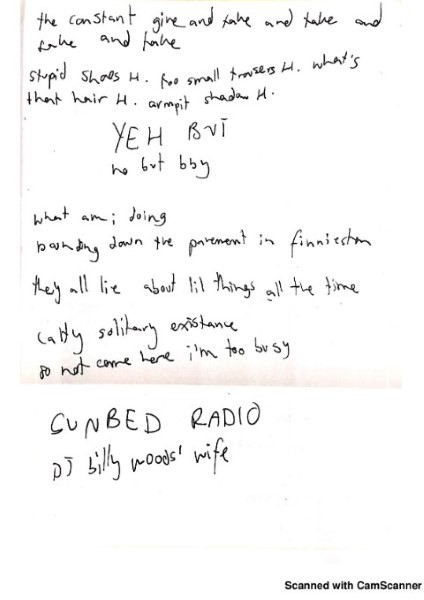 the constant give and take and take and
take and take
stupid shoes H. too small trousers H. what's
that hair H. armpit shadow H.
YEH BUT
no but bby
what am i doing
pounding down the pavement in finnieston
they all lie about lil things all the time
catty solitary existance
do not come here i'm too busy
SUNBED RADIO
DJ billy woods' wife
Scanned with CamScanner